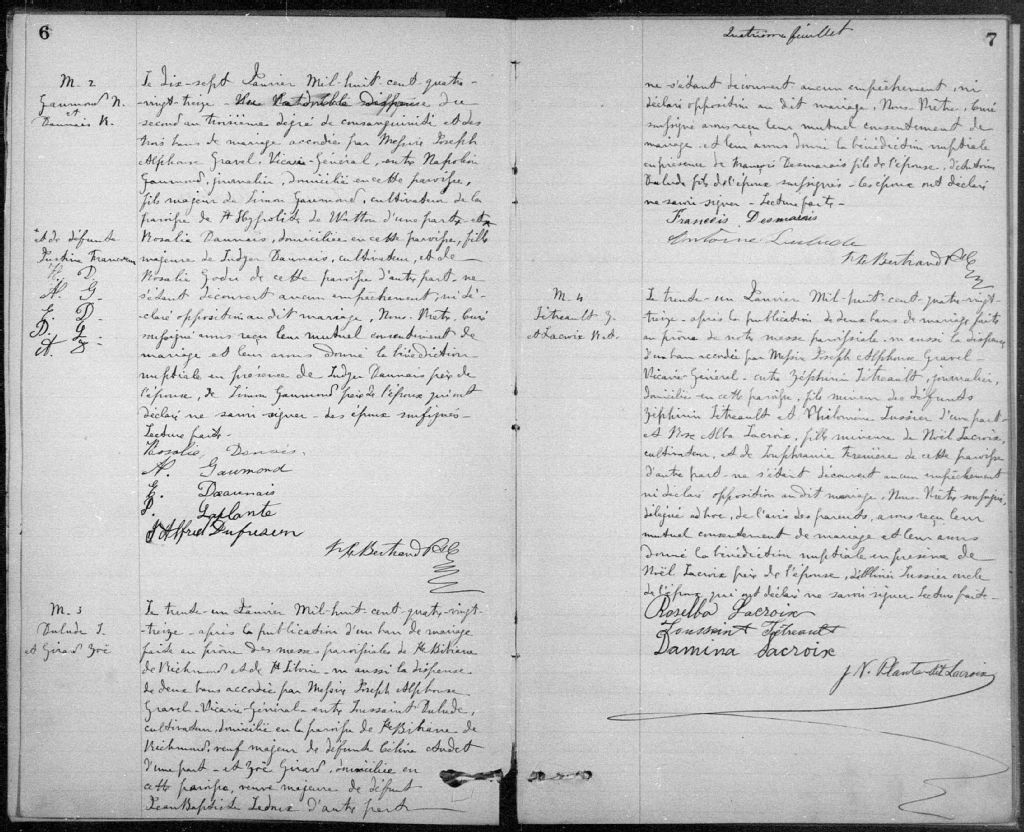 6
M. 2
Gaumond N.
et
Daunais R.
Le dix-sept Janvier Mil-huit-cent-quatre-
vingt-treize - dispense du
second au troisième degré de consanguinité et des
trois bans de mariage accordée par Messire Joseph
Alphonse Gravel, Vicaire-Général, entre Napoléon
Gaumond, journalier, domicilié en cette paroisse,
fils majeur de Simon Gaumond, cultivateur de la
paroisse de St Hypolite de Wotton d'une part et
Rosalie Daunais, domiciliée en cette paroisse, fille
majeure de Ludger Daunais, cultivateur, et de
Rosalie Godu de cette paroisse d'autre part ne
s'étant découvert aucun empêchement, ni dé-
claré opposition au dit mariage, Nous, Prêtre, Curé
soussigné avons reçu leur mutuel consentement de
mariage et leur avons donné la bénédiction
nuptiale en présence de Ludger Daunais père de
l'épouse, de Simon Gaumond père de l'époux qui ont
déclaré ne savoir signer - les époux soussignés -
Lecture faite -
+et de défunte
Justine
R. D
N. G
L. D
D. G
Rosalie Danais.
N. Gaumond
L. Daunais
D. Laplante
J Alfred Dufresne
Bertrand Ptre C
M. 3
Dulude T.
et Girard Zoë
Le trente-un Janvier Mil-huit-cent-quatre-vingt-
treize - après la publication d'un ban de mariage
faite au prône des messes paroissiales de Ste Bibiane
de Richmond et de St Liboire - vu aussi la dispense
de deux bans accordée par Messire Joseph Alphonse
Gravel - Vicaire-Général - entre Toussaint Dulude,
cultivateur, domicilié en la paroisse de Ste Bibiane de
Richmond, veuf majeur de défunte Célina Audet
d'une part - et Zoë Girard, domiciliée en
cette paroisse, veuve majeure de défunt
Jean Baptiste Ledoux d'autre part
Quatrième feuillet
7
ne s'étant découvert aucun empêchement, ni
déclaré opposition au dit mariage, Nous Prêtre, Curé
soussigné avons reçu leur mutuel consentement de
mariage et leur avons donné la bénédiction nuptiale
en présence de François Desmarais fils de l'épouse, d'Antoine
Dulude fils de l'époux soussignés - les époux ont déclaré
ne savoir signer - Lecture faite -
Francois Desmarais
Antoine Dulude
Bertrand Ptre C
M. 4
Tétreault Z.
et Lacroix R.A.
Le trente-un Janvier Mil-huit-cent-quatre-vingt-
treize - après la publication de deux bans de mariage faite
au prône de notre messe paroissiale, vu aussi la dispense
d'un ban accordée par Messire Joseph Alphonse Gravel -
Vicaire-Général - entre Zéphirin Tétreault, journalier,
domicilié en cette paroisse, fils mineur des défunts
Zéphirin Tétreault et Philomène Lussier d'une part
et Rose Alba Lacroix, fille mineure de Noël Lacroix,
cultivateur, et de de cette paroisse
d'autre part ne s'étant découvert aucun empêchement
ni déclaré opposition au dit mariage, Nous, Prêtre soussigné,
délégué ad hoc, de l'avis des parents, avons reçu leur
mutuel consentement de mariage et leur avons
donné la bénédiction nuptiale en présence de
Noël Lacroix père de l'épouse, Lussier oncle
de l'époux qui ont déclaré ne savoir signer - Lecture faite -
Roselba Lacroix
Toussaint Tétreault
Damina Lacroix
J N. Plante dit Lacroix